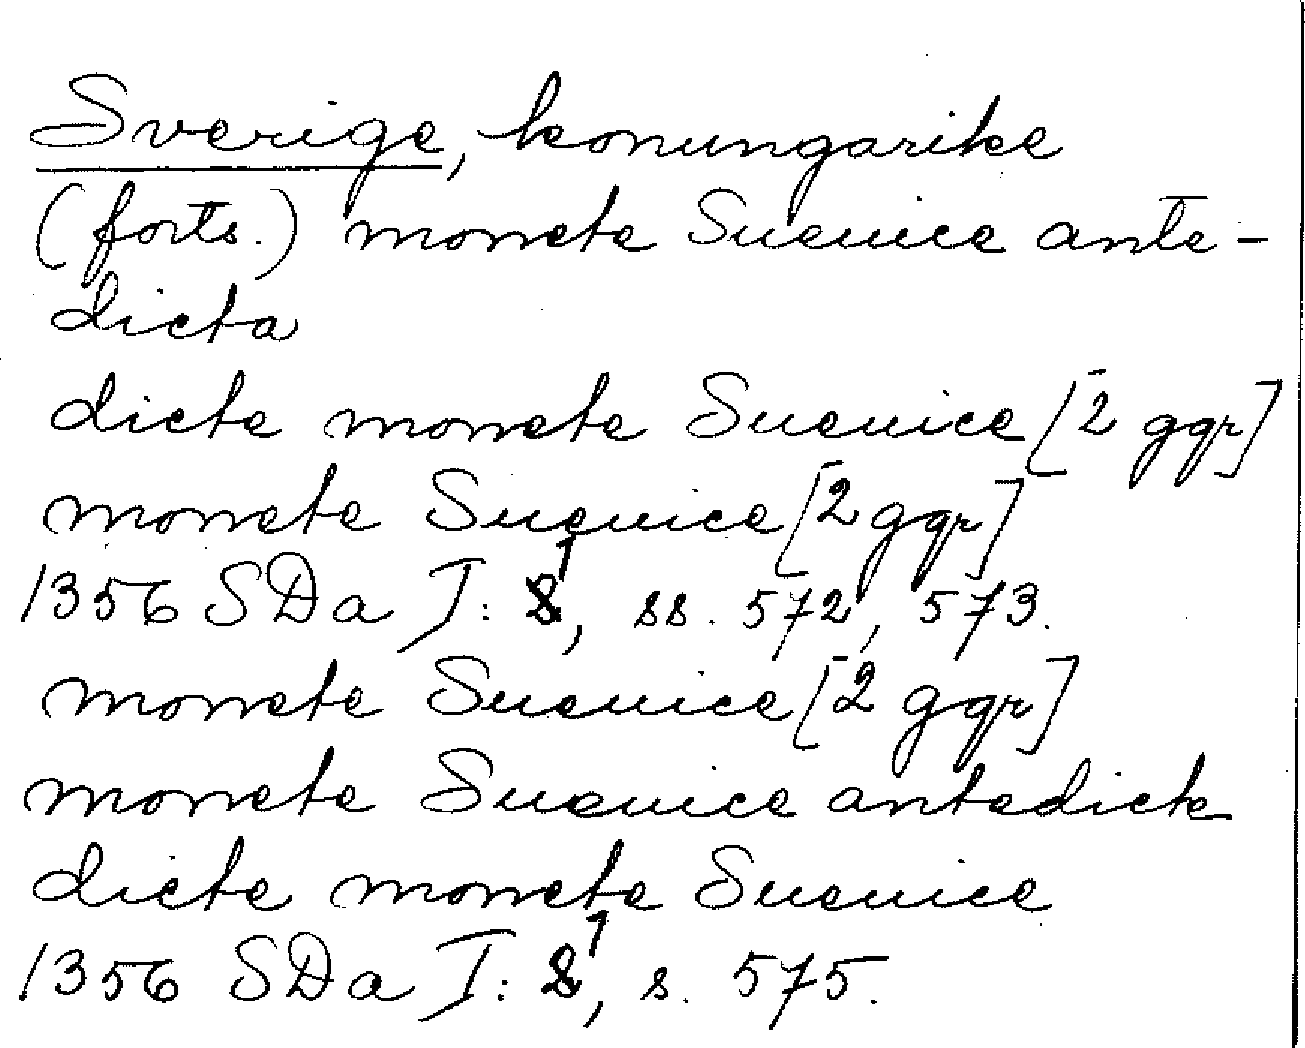 Sverige, konungarike
(forts.) monete Sueuice ante-
dicta
dicte monete Sueuice [2 ggr]
monete Sueuice [2 ggr]
1356 SDa I: 1, ss. 572, 573.
monete Sueuice [2 ggr]
monete Sueuice antedicte
dicte monete Sueuice
1356 SDa I: 1, s. 575.